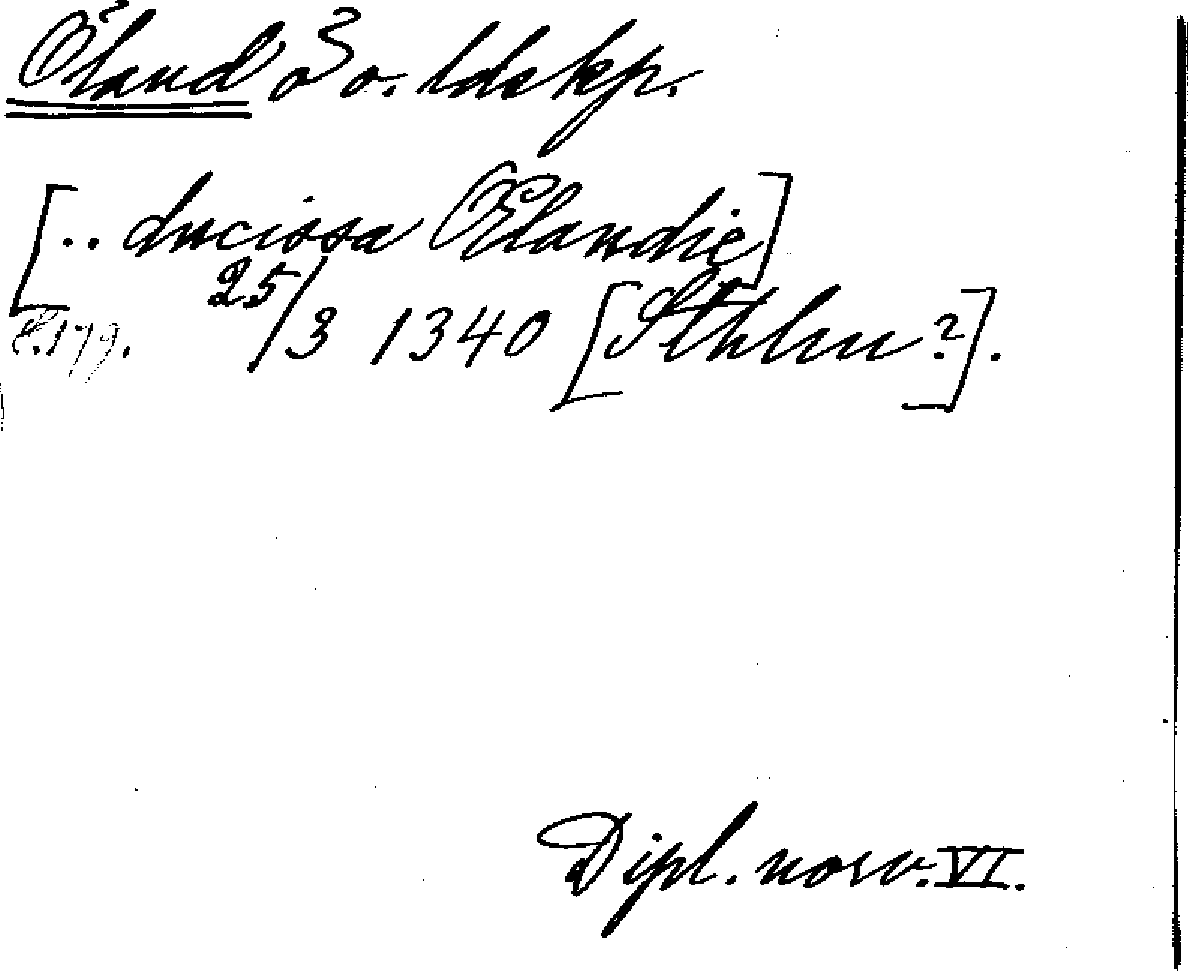 Öland ö o. ldskp.
[.. ducissa Œlandie]
s. 179. 25/3 1340 [Sthlm?].
Dipl. norv. VI.